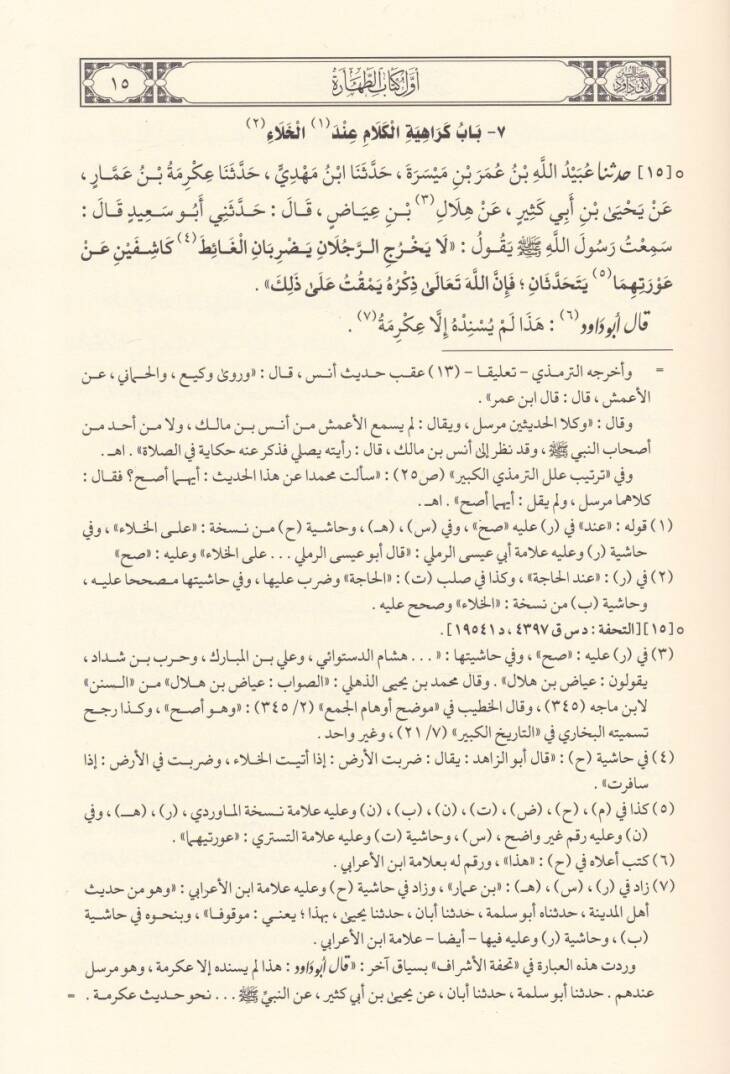 ١٥
أول كتاب الطهارة
٧- بَابُ كَرَاهِيَةِ الْكَلَامِ عِنْدَ(١) الْخَلَاءِ(٢)
○[١٥] حدثنا عُبَيْدُ اللَّهِ بْنُ عُمَرَ بْنِ مَيْسَرَةَ ، حَدَّثَنَا ابْنُ مَهْدِيٍّ ، حَدَّثَنَا عِكْرِمَةُ بْنُ عَمَّارٍ ،
عَنْ يَحْيَىٰ بْنِ أَبِي كَثِيرٍ ، عَنْ هِلَالِ(٣) بْنِ عِيَاضٍ ، قَالَ : حَدَّثَنِي أَبُو سَعِيدٍ قَالَ :
سَمِعْتُ رَسُولَ اللَّهِ ﷺ يَقُولُ : «لَا يَخْرُجِ الرَّجُلَانِ يَضْرِبَانِ الْغَائِطَ(٤) كَاشِفَيْنِ عَنْ
عَوْرَتِهِمَا(٥) يَتَحَدَّثَانِ ؛ فَإِنَّ اللَّهَ تَعَالَىٰ ذِكْرُهُ يَمْقُتُ عَلَىٰ ذَلِكَ» .
قال أبو داود(٦) : هَذَا لَمْ يُسْنِدْهُ إِلَّا عِكْرِمَةُ(٧) .
= وأخرجه الترمذي - تعليقا - (١٣) عقب حديث أنس ، قال : «وروىٰ وكيع ، والحماني ، عن
الأعمش ، قال : قال ابن عمر» .
وقال : «وكلا الحديثين مرسل ، ويقال : لم يسمع الأعمش من أنس بن مالك ، ولا من أحد من
أصحاب النبي ﷺ ، وقد نظر إلىٰ أنس بن مالك ، قال : رأيته يصلي فذكر عنه حكاية في الصلاة» . اهـ .
وفي «ترتيب علل الترمذي الكبير» (ص٢٥) : «سألت محمدا عن هذا الحديث : أيهما أصح؟ فقال :
كلاهما مرسل ، ولم يقل : أيهما أصح» . اهـ .
(١) قوله : «عند» في (ر) عليه «صح» ، وفي (س) ، (هـ) ، وحاشية (ح) من نسخة : «علىٰ الخلاء» ، وفي
حاشية (ر) وعليه علامة أبي عيسى الرملي : «قال أبو عيسى الرملي ... على الخلاء» وعليه : «صح»
(٢) في (ر) : «عند الحاجة» ، وكذا في صلب (ت) : «الحاجة» وضرب عليها ، وفي حاشيتها مصححا عليه ،
وحاشية (ب) من نسخة : «الخلاء» وصحح عليه .
○[١٥] [التحفة : د س ق ٤٣٩٧ ، د ١٩٥٤١] .
(٣) في (ر) عليه : «صح» ، وفي حاشيتها : «... هشام الدستوائي ، وعلي بن المبارك ، وحرب بن شداد ،
يقولون : عياض بن هلال» . وقال محمد بن يحيى الذهلي : «الصواب : عياض بن هلال» من «السنن»
لابن ماجه (٣٤٥) ، وقال الخطيب في «موضح أوهام الجمع» (٢/ ٣٤٥) : «وهو أصح» ، وكذا رجح
تسميته البخاري في «التاريخ الكبير» (٧/ ٢١) ، وغير واحد .
(٤) في حاشية (ح) : «قال أبو الزاهد : يقال : ضربت الأرض : إذا أتيت الخلاء ، وضربت في الأرض : إذا
سافرت» .
(٥) كذا في (م) ، (ح) ، (ض) ، (ت) ، (ن) ، (ب) ، (ن) وعليه علامة نسخة الماوردي ، (ر) ، (هـ) ، وفي
(ن) وعليه رقم غير واضح ، (س) ، وحاشية (ت) وعليه علامة التستري : «عورتيهما» .
(٦) كتب أعلاه في (ح) : «هذا» ، ورقم له بعلامة ابن الأعرابي .
(٧) زاد في (ر) ، (س) ، (هـ) : «بن عمار» ، وزاد في حاشية (ح) وعليه علامة ابن الأعرابي : «وهو من حديث
أهل المدينة ، حدثناه أبو سلمة ، حدثنا أبان ، حدثنا يحيىٰ ، بهذا ؛ يعني : موقوفا» ، وبنحوه في حاشية
(ب) ، وحاشية (ر) وعليه فيها - أيضا - علامة ابن الأعرابي .
وردت هذه العبارة في «تحفة الأشراف» بسياق آخر : «قال أبو داود : هذا لم يسنده إلا عكرمة ، وهو مرسل
عندهم . حدثنا أبو سلمة ، حدثنا أبان ، عن يحيىٰ بن أبي كثير ، عن النبي ﷺ ... نحو حديث عكرمة . =